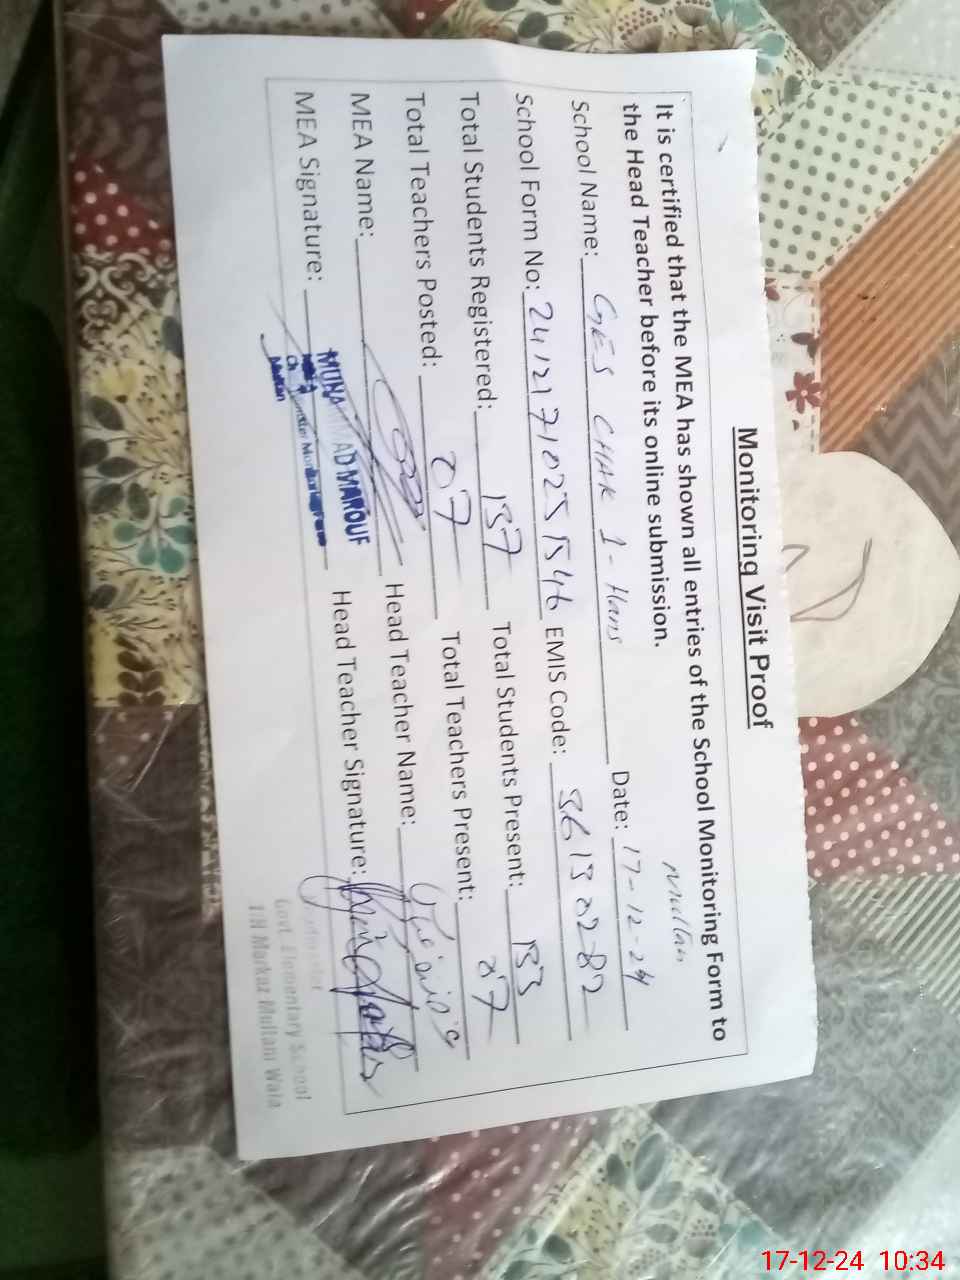 Monitoring Visit Proof
It is certified that the MEA has shown all entries of the School Monitoring Form to
the Head Teacher before its online submission.
Multan
School Name: GES CHAK 1- Hans Date: 17-12-24
School Form No: 2412171025 1546 EMIS Code: 36130282
Total Students Registered: 137 Total Students Present: 133
Total Teachers Posted: 07 Total Teachers Present: 07
MEA Name: Head Teacher Name:
MEA Signature: Head Teacher Signature:
MUHAMMAD MAROUF
MEA
Multan
Govt. Elementary School
Markaz Multani Wala
17-12-24 10:34